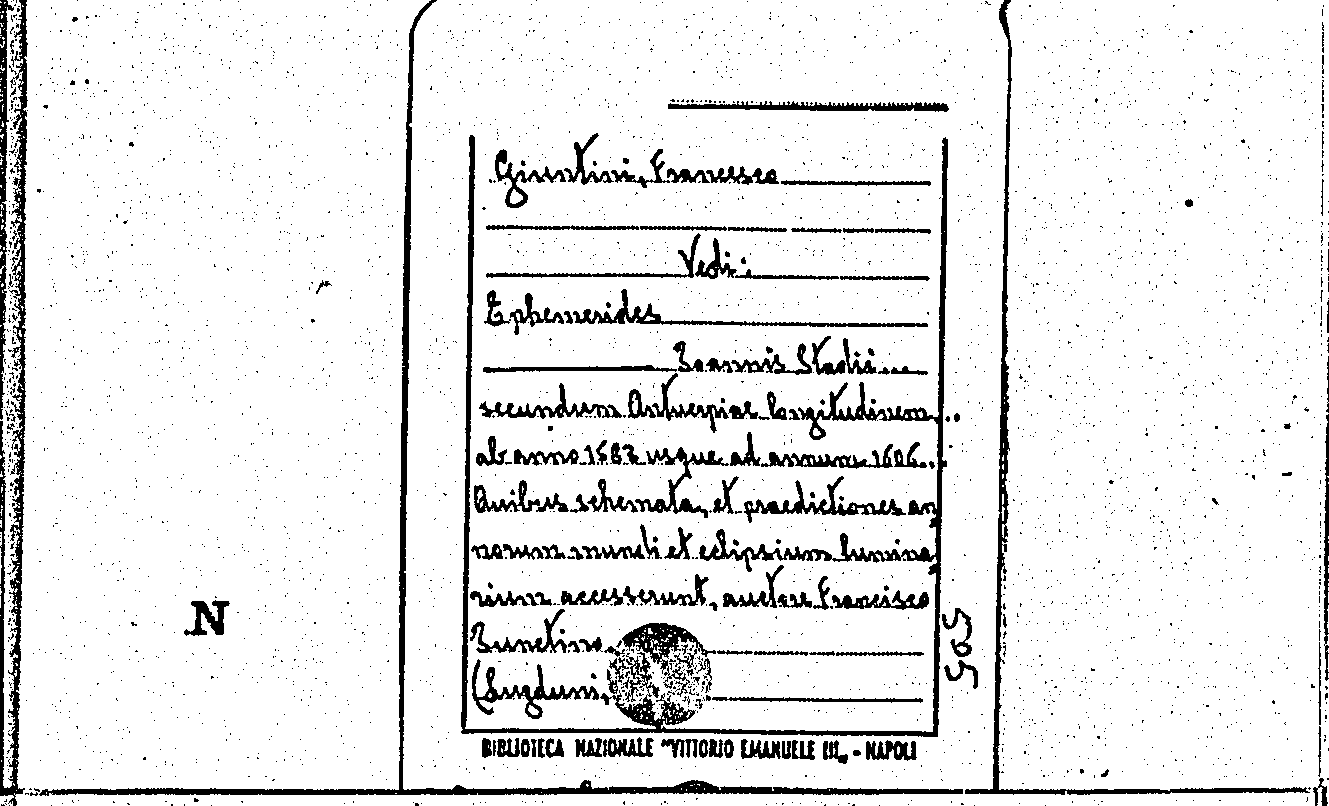 Giuntini, Francesco
Vedi:
Ephemerides
Ioannis Stadii...
secundum Antuerpiae longitudinem...
ab anno 1583 usque ad annum 1606...
Quibus schemata, et praedictiones an
norum mundi et eclipsium lumina
rium accesserunt, auctore Francisco
Iunctino.
(Lugduni,
505
N
BIBLIOTECA NAZIONALE "VITTORIO EMANUELE III„ - NAPOLI